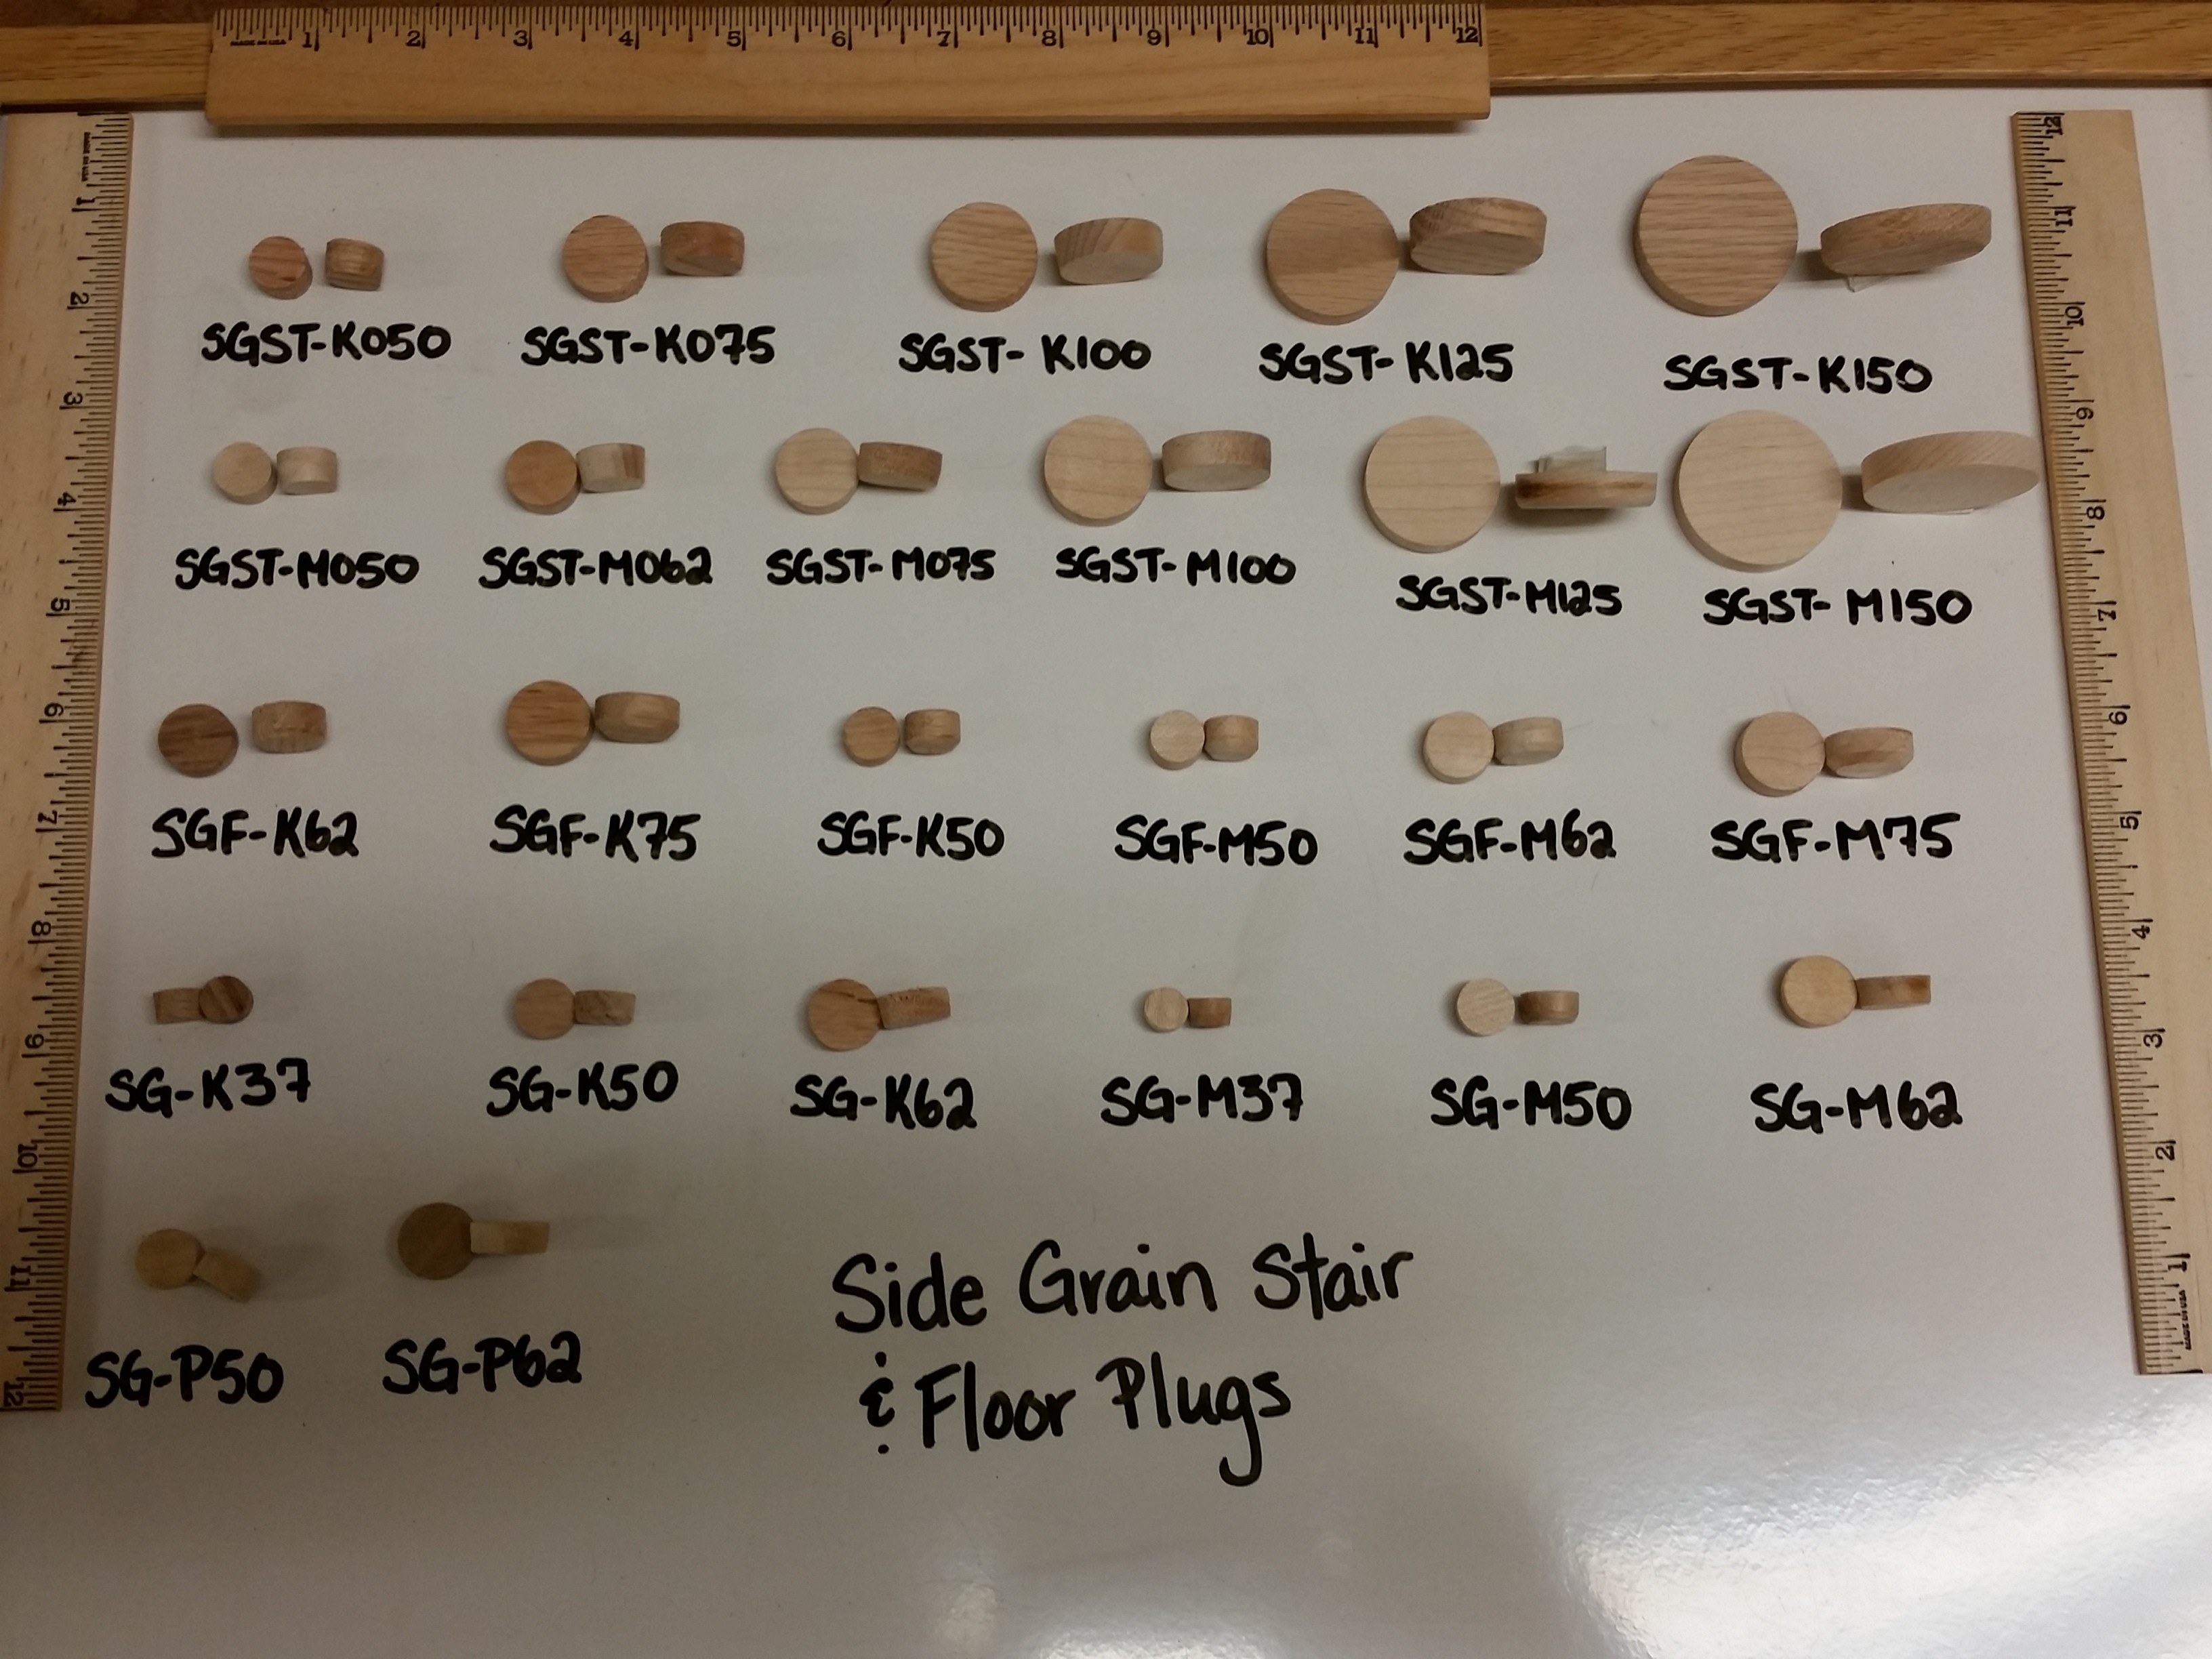 MADE IN USA 1 2 3 4 5 6 7 8 9 10 11 12
MADE IN USA 1 2 3 4 5 6 7 8 9 10 11 12
SGST-K050 SGST-K075 SGST-K100 SGST-K125 SGST-K150
SGST-M050 SGST-M062 SGST-M075 SGST-M100 SGST-M125 SGST-M150
SGF-K62 SGF-K75 SGF-K50 SGF-M50 SGF-M62 SGF-M75
SG-K37 SG-K50 SG-K62 SG-M37 SG-M50 SG-M62
SG-P50 SG-P62
Side Grain Stair
& Floor Plugs
12 11 10 9 8 7 6 5 4 3 2 1 MADE IN USA